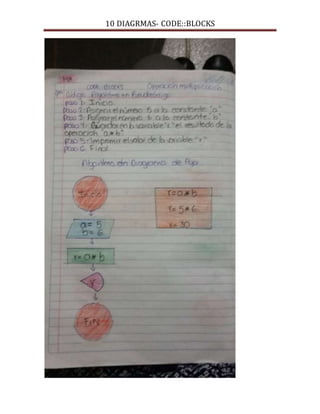 10 DIAGRMAS- CODE::BLOCKS
code blocks Operacion multiplicacion
Codigo Algoritmo en Pseudocodigo
paso 1: Inicio
paso 2: Asignar el número 5 a la constante "a"
paso 3: Asignar el número 6 a la constante "b"
paso 4: Guardar en la variable "r" el resultado de la
operación a*b"
paso 5: Imprimir el valor de la variable "r"
paso 6. Final
Algoritmo en Diagrama de flujo
Inicio
a= 5
b= 6
r=a*b
r
FIN
r=a*b
r= 5*6
r= 30